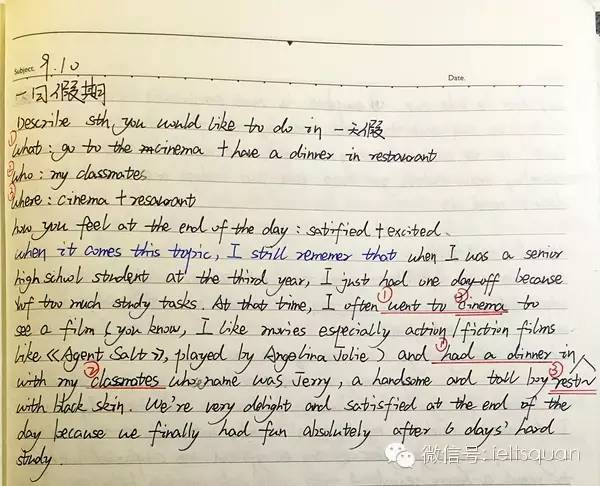 Subject. 9.10 Date.
一日假期
Describe sth you would like to do in 一天假
①what: go to the cinema + have a dinner in restaurant
②who: my classmates
③where: cinema + resaurant
how you feel at the end of the day: satisfied + excited.
when it comes this topic, I still rememer that when I was a senior
high school student at the third year, I just had one day-off because
of too much study tasks. At that time, I often ①went to ③cinema to
see a film (you know, I like movies especially action/fiction films
like 《Agent Salt》, played by Angelina Jolie) and ①had a dinner in
with my ②classmates whose name was Jerry, a handsome and tall boy ③restau
with black skin. We're very delight and satisfied at the end of the
day because we finally had fun absolutely after 6 days' hard
study.
微信号: ieltsquan